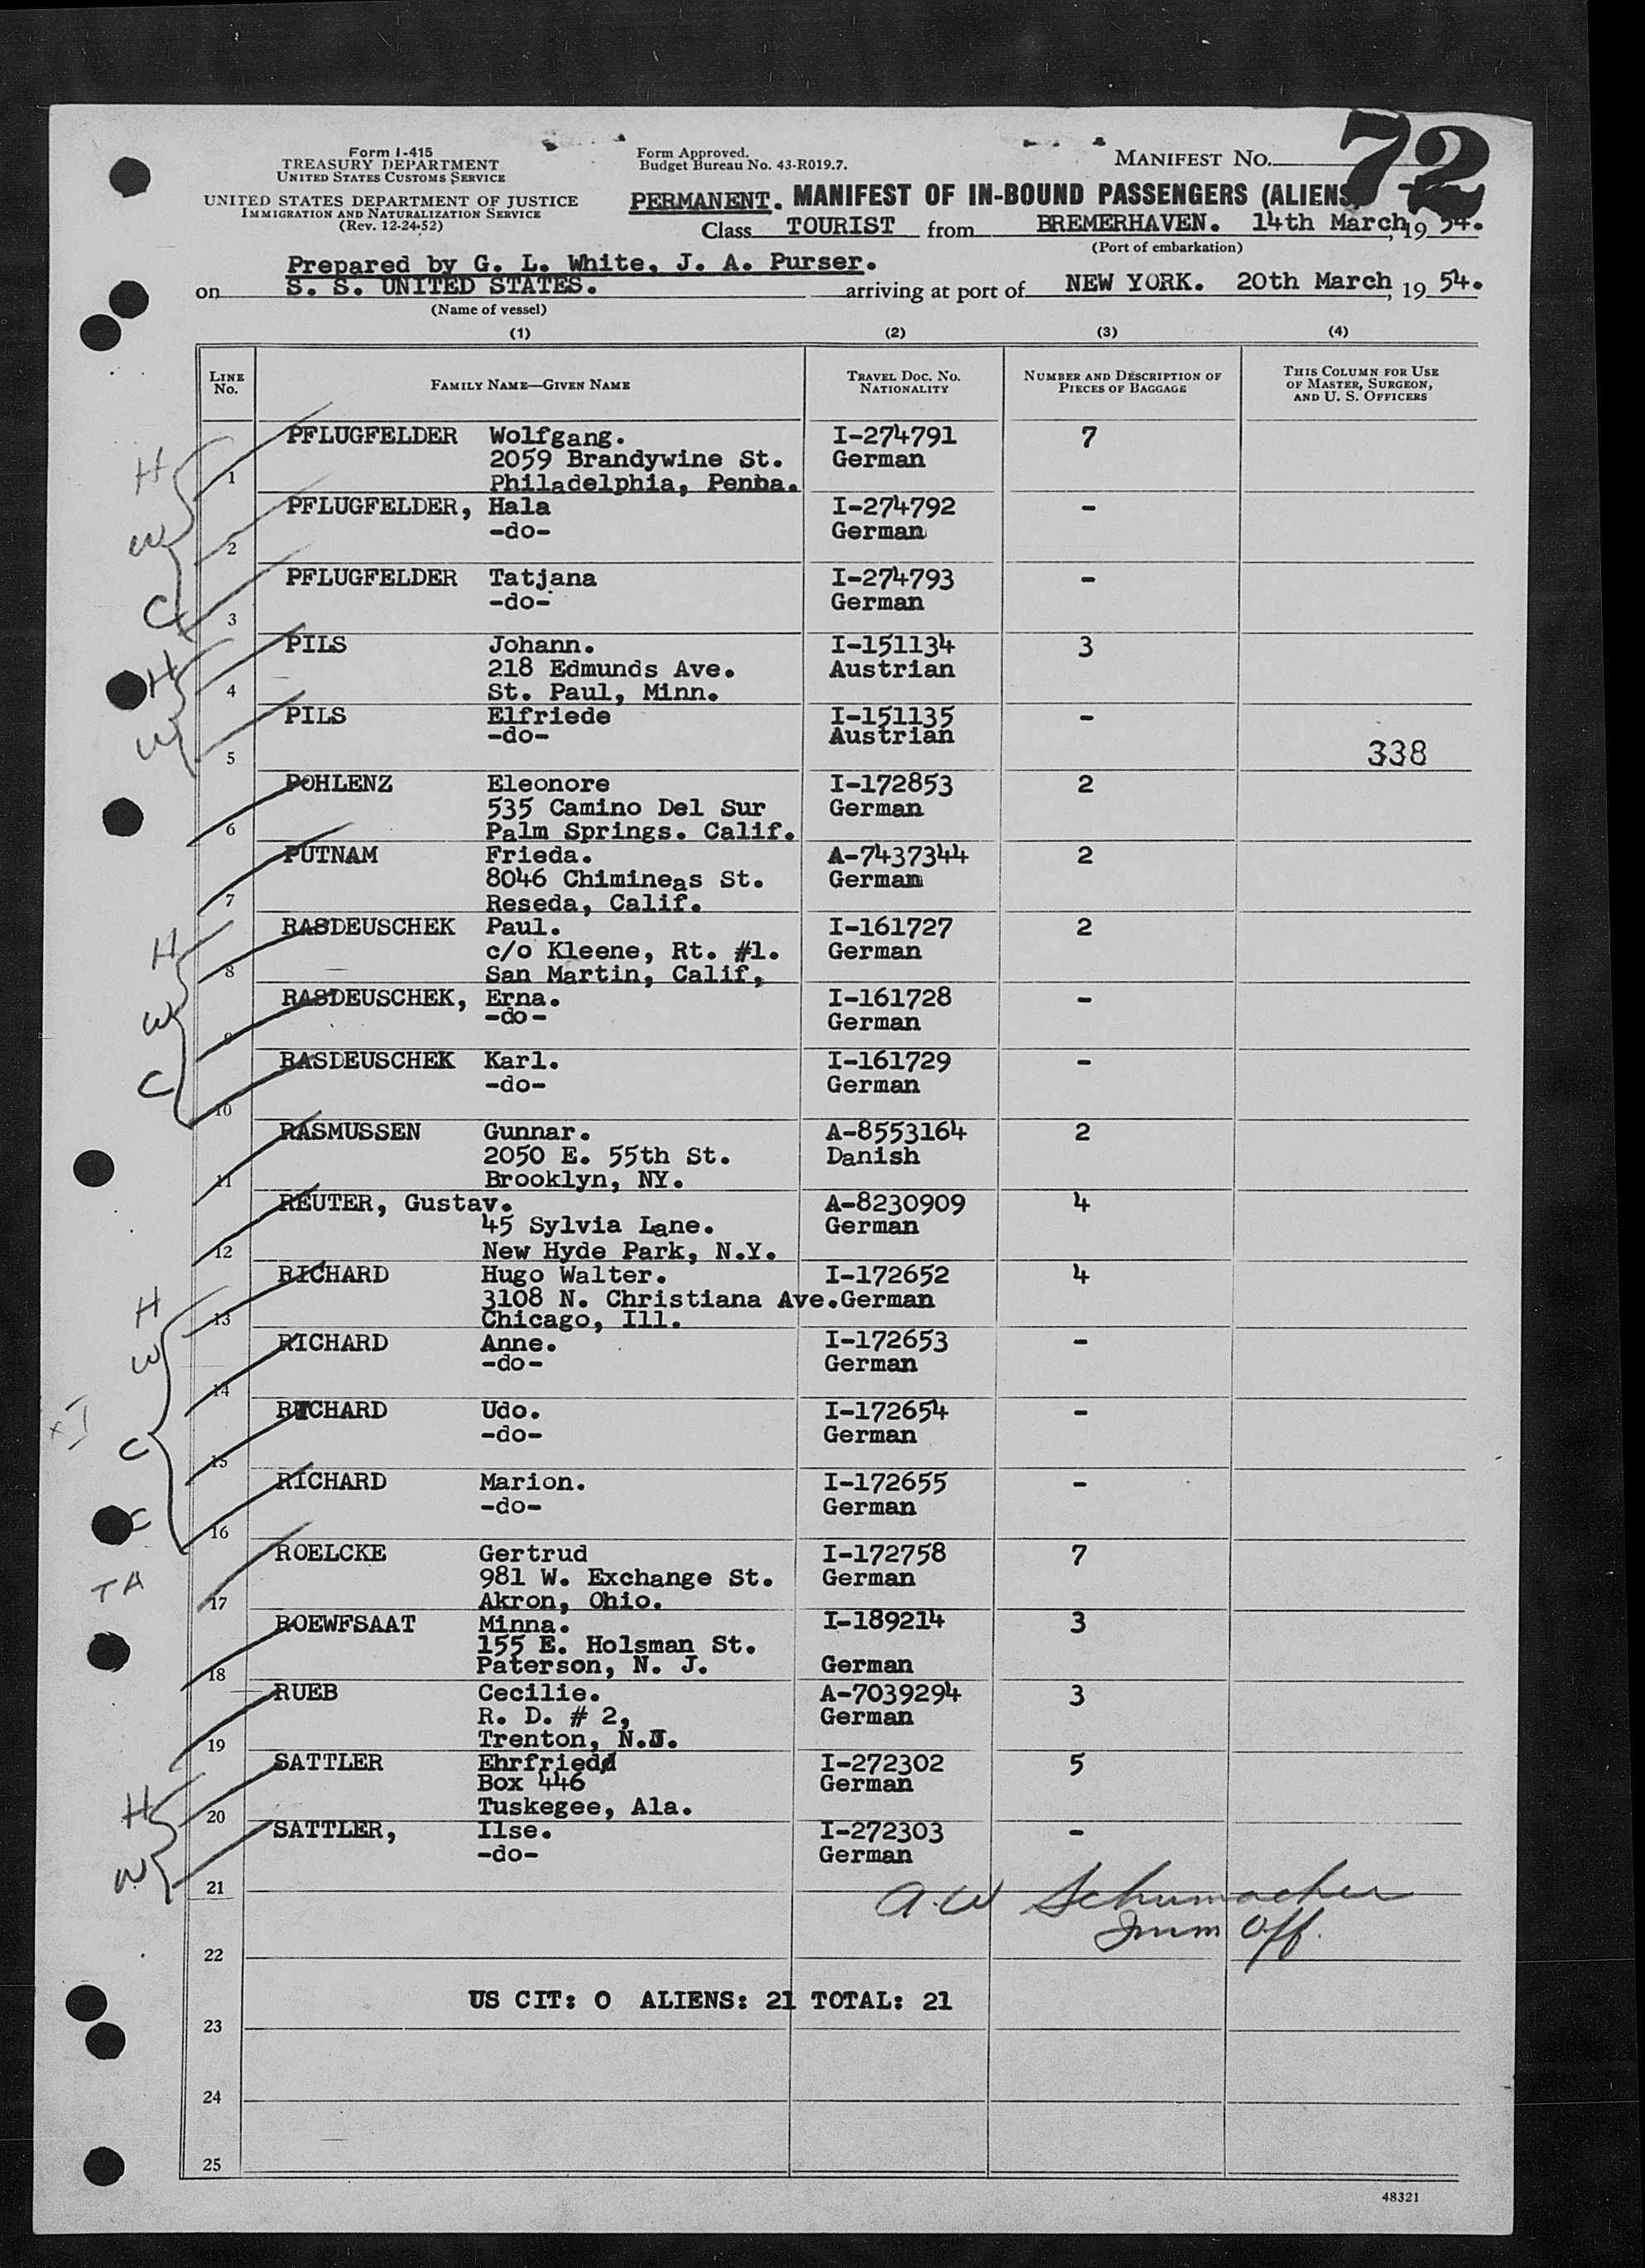 Form I-415
TREASURY DEPARTMENT
UNITED STATES CUSTOMS SERVICE
UNITED STATES DEPARTMENT OF JUSTICE
IMMIGRATION AND NATURALIZATION SERVICE
(Rev. 12-24-52)
Form Approved.
Budget Bureau No. 43-R019.7.
MANIFEST NO. 72
PERMANENT. MANIFEST OF IN-BOUND PASSENGERS (ALIENS
Class TOURIST from BREMERHAVEN. 14th March, 19 54.
(Port of embarkation)
Prepared by G. L. White, J. A. Purser.
on S. S. UNITED STATES. arriving at port of NEW YORK. 20th March, 19 54.
(Name of vessel)
(1) (2) (3) (4)
LINE NO. FAMILY NAME—GIVEN NAME TRAVEL DOC. NO. NATIONALITY NUMBER AND DESCRIPTION OF PIECES OF BAGGAGE THIS COLUMN FOR USE OF MASTER, SURGEON, AND U. S. OFFICERS
PFLUGFELDER Wolfgang. I-274791 7
2059 Brandywine St. German
H 1 Philadelphia, Penna.
PFLUGFELDER, Hala I-274792 -
W 2 -do- German
PFLUGFELDER Tatjana I-274793 -
C 3 -do- German
PILS Johann. I-151134 3
218 Edmunds Ave. Austrian
H 4 St. Paul, Minn.
PILS Elfriede I-151135 -
W 5 -do- Austrian
338
POHLENZ Eleonore I-172853 2
535 Camino Del Sur German
6 Palm Springs. Calif.
PUTNAM Frieda. A-7437344 2
8046 Chimineas St. German
7 Reseda, Calif.
RASDEUSCHEK Paul. I-161727 2
c/o Kleene, Rt. #1. German
H 8 San Martin, Calif,
RASDEUSCHEK, Erna. I-161728 -
W 9 -do- German
RASDEUSCHEK Karl. I-161729 -
C 10 -do- German
RASMUSSEN Gunnar. A-8553164 2
2050 E. 55th St. Danish
11 Brooklyn, NY.
REUTER, Gustav. A-8230909 4
45 Sylvia Lane. German
12 New Hyde Park, N.Y.
RICHARD Hugo Walter. I-172652 4
3108 N. Christiana Ave. German
H 13 Chicago, Ill.
RICHARD Anne. I-172653 -
W 14 -do- German
RICHARD Udo. I-172654 -
C 15 -do- German
RICHARD Marion. I-172655 -
C 16 -do- German
ROELCKE Gertrud I-172758 7
981 W. Exchange St. German
TA 17 Akron, Ohio.
ROEWFSAAT Minna. I-189214 3
155 E. Holsman St.
18 Paterson, N. J. German
RUEB Cecilie. A-7039294 3
R. D. # 2, German
19 Trenton, N.J.
SATTLER Ehrfried I-272302 5
Box 446 German
H 20 Tuskegee, Ala.
SATTLER, Ilse. I-272303 -
-do- German
W 21
A.W Schumacher
Imm Off.
22
US CIT: 0 ALIENS: 21 TOTAL: 21
23
24
25
48321